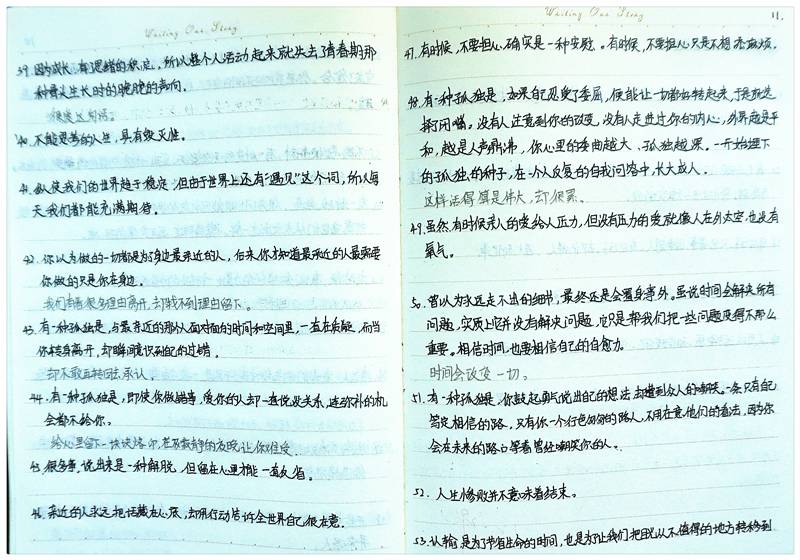 Writing Our Story
39. 因为成长,有思绪的积怨,所以整个人活动起来就失去了青春期那
种骨头生长时的脆脆的声响。
40. 不能思考的人生,具有毁灭性。
41. 纵使我们的世界趋于稳定,但由于世界上还有“遇见”这个词,所以每
天我们都能充满期待。
42. 你以为做的一切都是为了身边最亲近的人,后来你才知道最亲近的人最需要
你做的只是你在身边。
我们有着很多理由离开,却找不到理由留下。
43. 有一种孤独是,与最亲近的那个人面对面的时间和空间里,一直在质疑,而当
你转身离开,却瞬间意识到自己的过错。
却不敢再转回去承认。
44. 有一种孤独是,即使你做错事,爱你的人却一直说没关系,连弥补的机
会都不给你。
给心里留下一块疙瘩,若不安静的发脱,让你难受。
45. 很多事,说出来是一种解脱,但留在心里才能一直反省。
46. 亲近的人永远把话藏在心底,却用行动告诉全世界自己很在意。
Writing Our Story
11.
47. 有时候,不要担心确实是一种安慰。有时候,不要担心只是不想添麻烦。
48. 有一种孤独是,如果自己忍受了委屈,便能让一切都好转起来,于是就选
择了闭嘴。没有人注意到你的改变,没有人走进过你的内心,外界越是平
和,越是人声鼎沸,你心里的委曲越大、孤独越深。一开始埋下
的孤独的种子,在一个人反复的自我问答中,长大成人。
这样活得算是伟大,却很累。
49. 虽然,有时候亲人的爱给人压力,但没有压力的爱就像人在外太空,也没有
氧气。
50. 曾以为永远走不出的细节,最终还是会置身事外。虽说时间会解决所有
问题,实质上它并没有解决问题,它只是帮我们把一些问题变得不那么
重要。相信时间,也要相信自己的自愈力。
时间会改变一切。
51. 有一种孤独是,你鼓起勇气说出自己的想法,却遭到众人的嘲笑。一条只有自己
笃定相信的路,只有你一个行色匆匆的路人,不用在意他们的看法,因为你
会在未来的路口等着曾经嘲笑你的人。
52. 人生惨败并不意味着结束。
53. 认输是为了节省生命的时间,也是为了让我们把目光从不值得的地方转移到